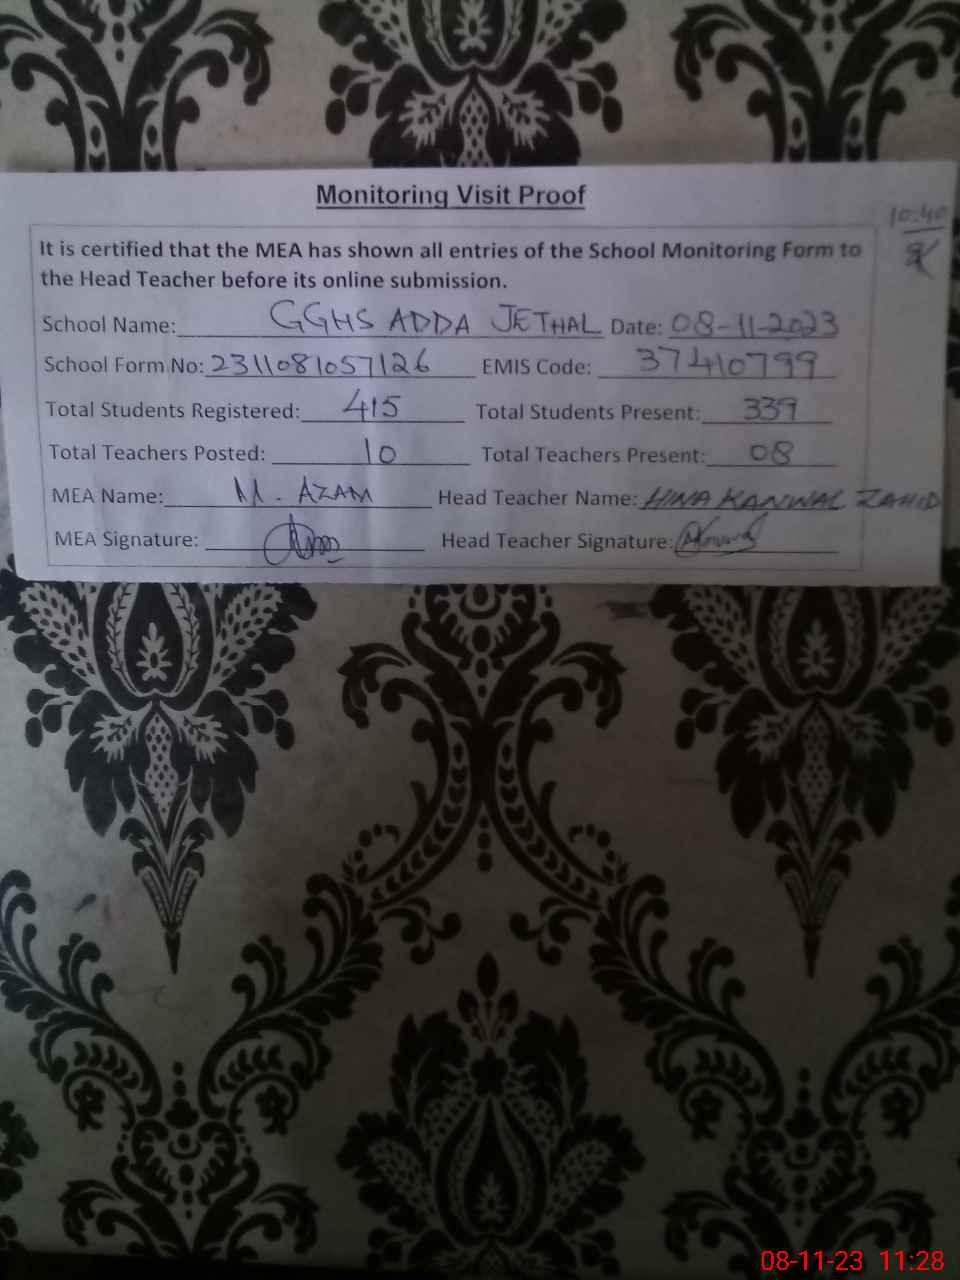 Monitoring Visit Proof
10:40
It is certified that the MEA has shown all entries of the School Monitoring Form to
the Head Teacher before its online submission.
School Name: GGHS ADDA JETHAL Date: 08-11-2023
School Form No: 2311081057126 EMIS Code: 37410799
Total Students Registered: 415 Total Students Present: 339
Total Teachers Posted: 10 Total Teachers Present: 08
MEA Name: M. AZAM Head Teacher Name: HINA KANWAL ZAHID
MEA Signature: Head Teacher Signature:
08-11-23 11:28